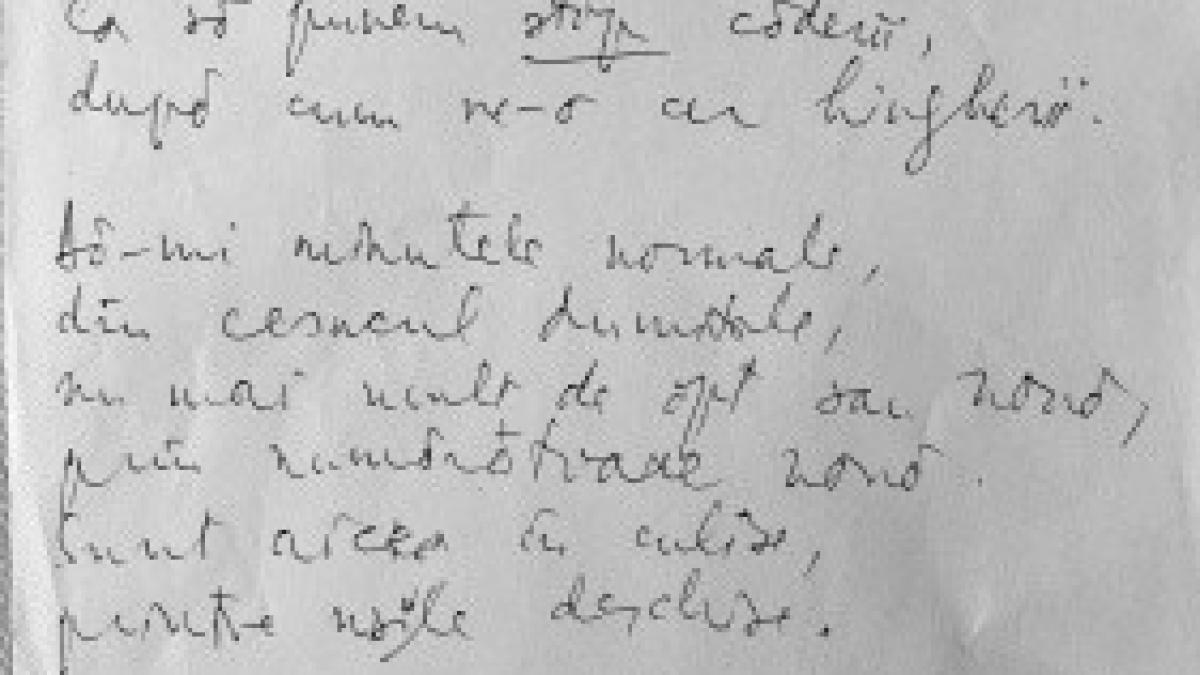 Ca să punem stop căderii,
după cum ne-o cer hingherii.
Dă-mi minutele normale,
din ceasul dumitale,
nu mai mult de opt sau nouă,
prin numărătoare nouă.
Sunt aicea în culise,
printre ușile deschise.